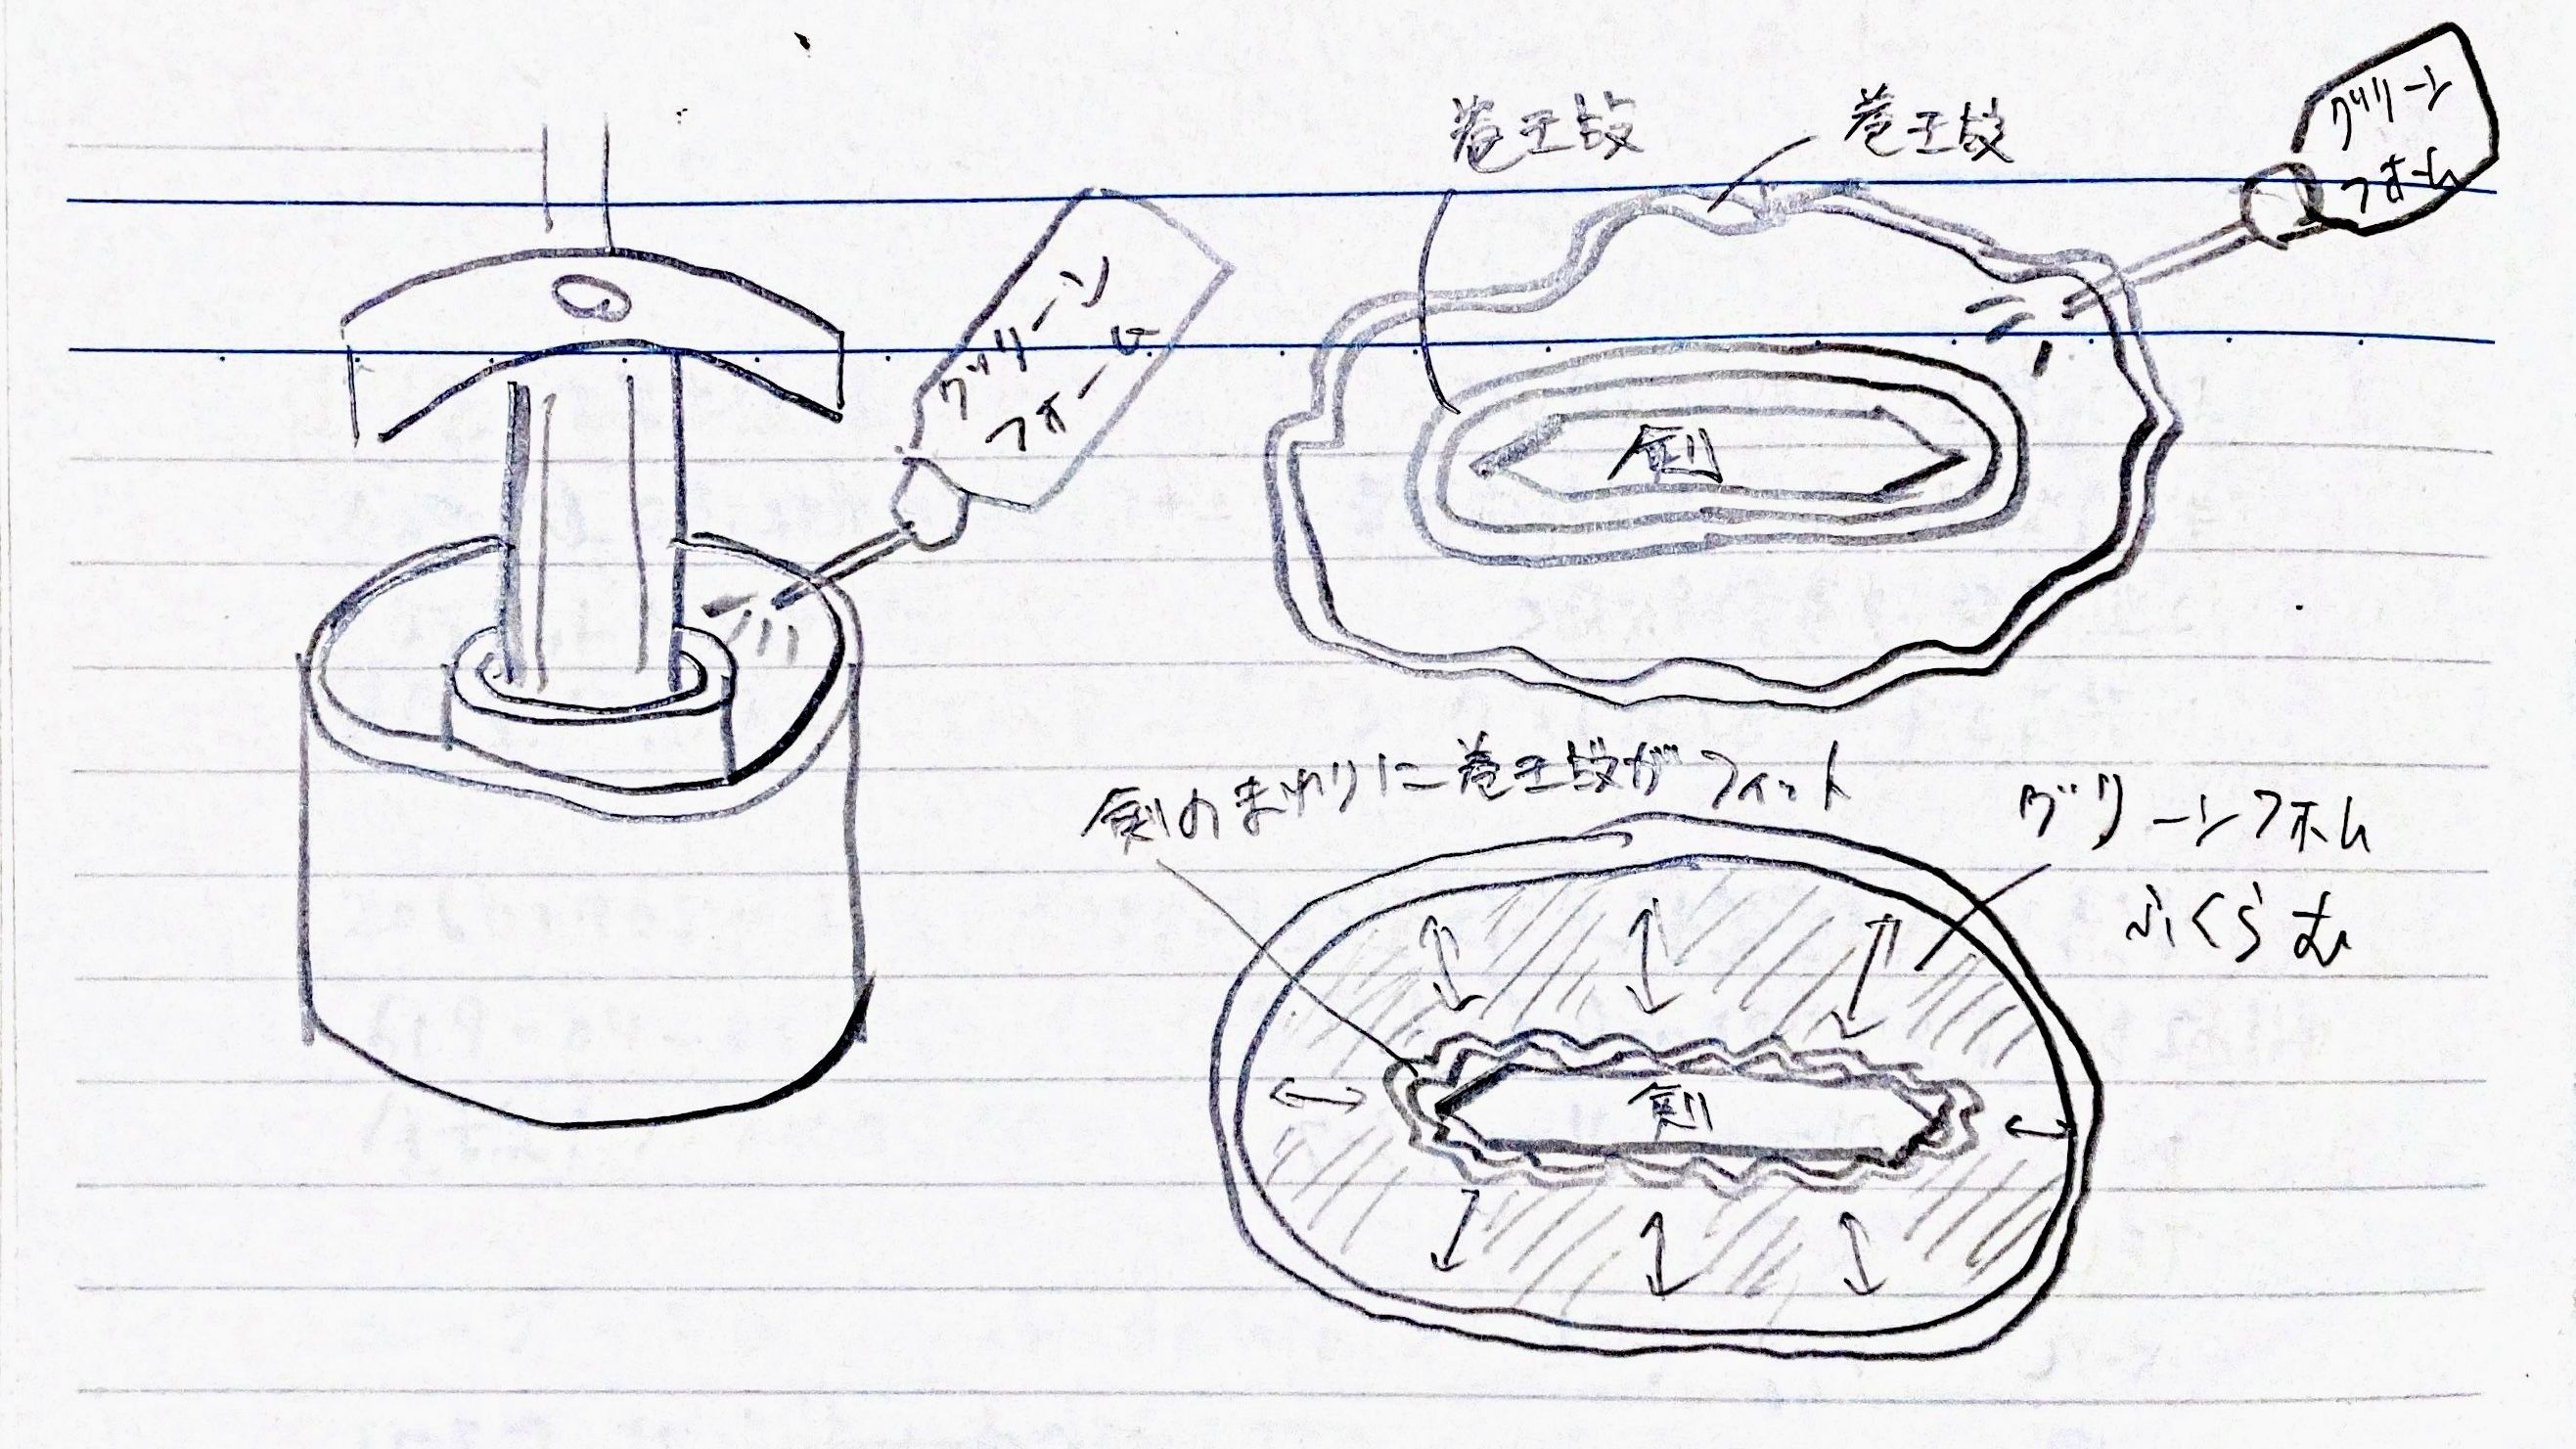 グリーン
フォーム
巻王段
巻王段
グリーン
フォーム
剣
剣のまわりに巻王段がフィット
グリーンフホム
ふくらむ
剣